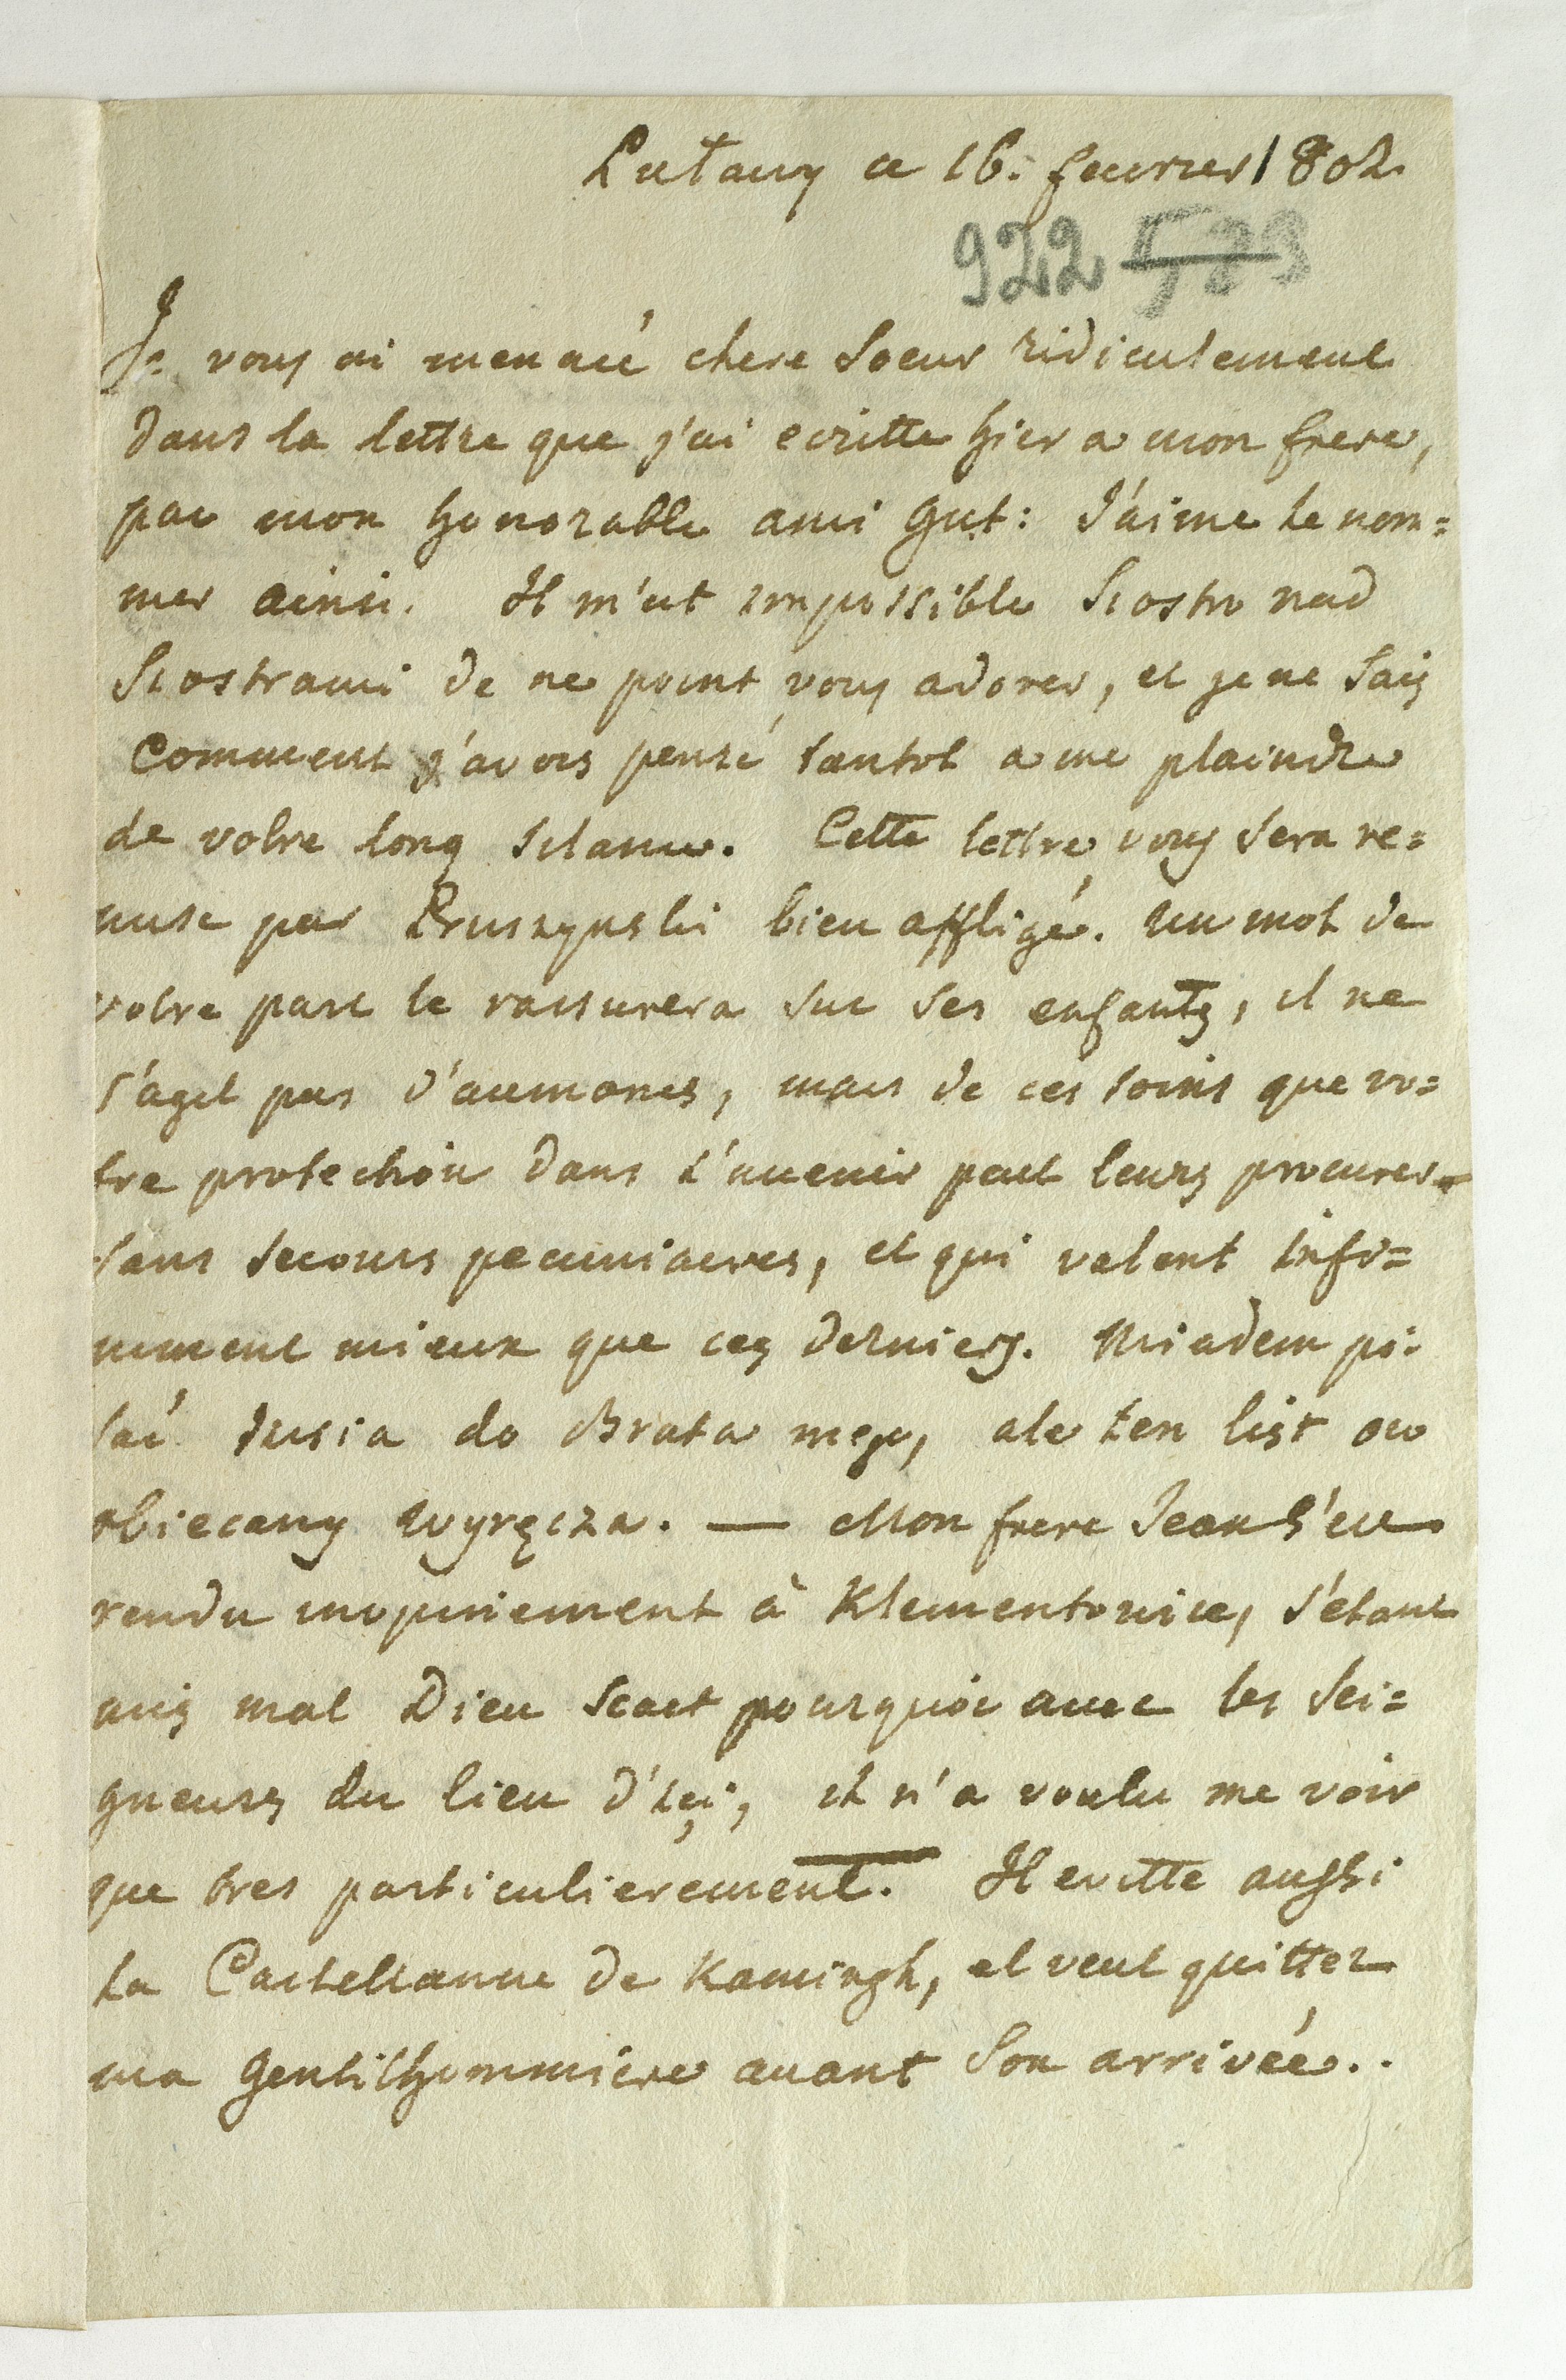 Pulawy ce 16. feuvrier 1802.
922 529
Je vous ai menacé chere Soeur ridiculement
dans la lettre que j'ai ecritte hier a mon frere,
par mon honorable ami Gut: J'aime le nom=
mer ainsi. Il m'est impossible Siostro nad
Siostrami de ne point vous adorer, et je ne Sais
comment j'avois pensé tantot a me plaindre
de votre long silance. Cette lettre vous Sera re=
mise par Pruszynski bien affligé. Un mot de
votre part le rassurera sur ses enfants, il ne
s'agit pas d'aumones, mais de ces soins que vo=
tre protection dans l'avenir peut leurs procurer
sans secours pecuniaires, et qui valent infi=
niment mieux que ces derniers. Miadem pi=
sać dusia do Brata mego, ale ten list ow
obiecany wyręcza. — Mon frere Jean s'est
rendu inopinement à Klementowice, s'étant
mis mal Dieu scait pourquoi avec les Sei=
gneurs du lieu d'içi, il n'a voulu me voir
que tres particulierement. Il evitte aussi
la Castellanne de Kaminsk, et veut quitter
ma Gentilhommiere avant Son arrivée..